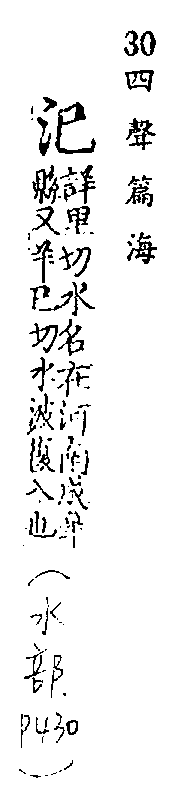 30 四聲篇海
汜
詳里切水名在河南成皐
縣又羊巳切水復入也
（水部 P430）